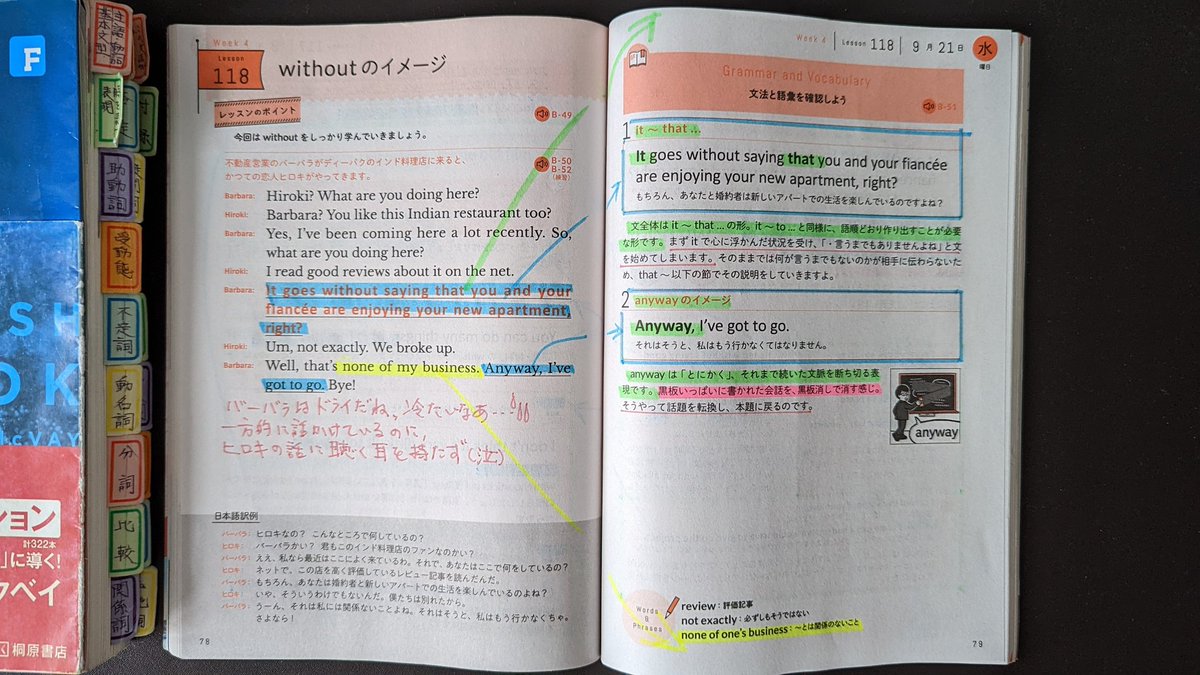 F
SH
OK
McVAY
ション
計322本
」に導く!
クベイ
桐原書店
基本文型
表現
助動詞
受動態
不定詞
動名詞
分詞
比較
関係詞
Week 4
Lesson
118
withoutのイメージ
レッスンのポイント
B-49
今回は without をしっかり学んでいきましょう。
不動産営業のバーバラがディーパクのインド料理店に来ると、
かつての恋人ヒロキがやってきます。
B-50
B-52
(練習)
Barbara: Hiroki? What are you doing here?
Hiroki: Barbara? You like this Indian restaurant too?
Barbara: Yes, I've been coming here a lot recently. So,
what are you doing here?
Hiroki: I read good reviews about it on the net.
Barbara: It goes without saying that you and your
fiancée are enjoying your new apartment,
right?
Hiroki: Um, not exactly. We broke up.
Barbara: Well, that's none of my business. Anyway, I've
got to go. Bye!
バーバラはドライだね、冷たいなあ…!!!
一方的に話かけているのに、
ヒロキの話に聴く耳を持たず(泣)
日本語訳例
バーバラ: ヒロキなの? こんなところで何しているの?
ヒロキ: バーバラかい? 君もこのインド料理店のファンなのかい?
バーバラ: ええ、私なら最近はここによく来ているわ。それで、あなたはここで何をしているの?
ヒロキ: ネットで、この店を高く評価しているレビュー記事を読んだんだ。
バーバラ: もちろん、あなたは婚約者と新しいアパートでの生活を楽しんでいるのよね?
ヒロキ: いや、そういうわけでもないんだ。僕たちは別れたから。
バーバラ: うーん、それは私には関係ないことよね。それはそうと、私はもう行かなくちゃ。
さよなら!
78
Week 4 Lesson 118 9月21日 水
曜日
Grammar and Vocabulary
文法と語彙を確認しよう
B-51
1 it ~ that ...
It goes without saying that you and your fiancée
are enjoying your new apartment, right?
もちろん、あなたと婚約者は新しいアパートでの生活を楽しんでいるのですよね?
文全体は it ~ that ... の形。it ~ to ... と同様に、語順どおり作り出すことが必要
な形です。まず it で心に浮かんだ状況を受け、「・言うまでもありませんよね」と文
を始めてしまいます。そのままでは何が言うまでもないのかが相手に伝わらないた
め、that ~ 以下の節でその説明をしていきますよ。
2 anywayのイメージ
Anyway, I've got to go.
それはそうと、私はもう行かなくてはなりません。
anyway は「とにかく」、それまで続いた文脈を断ち切る表
現です。黒板いっぱいに書かれた会話を、黒板消しで消す感じ。
そうやって話題を転換し、本題に戻るのです。
anyway
Words
&
Phrases
review:評価記事
not exactly:必ずしもそうではない
none of one's business:~とは関係のないこと
79